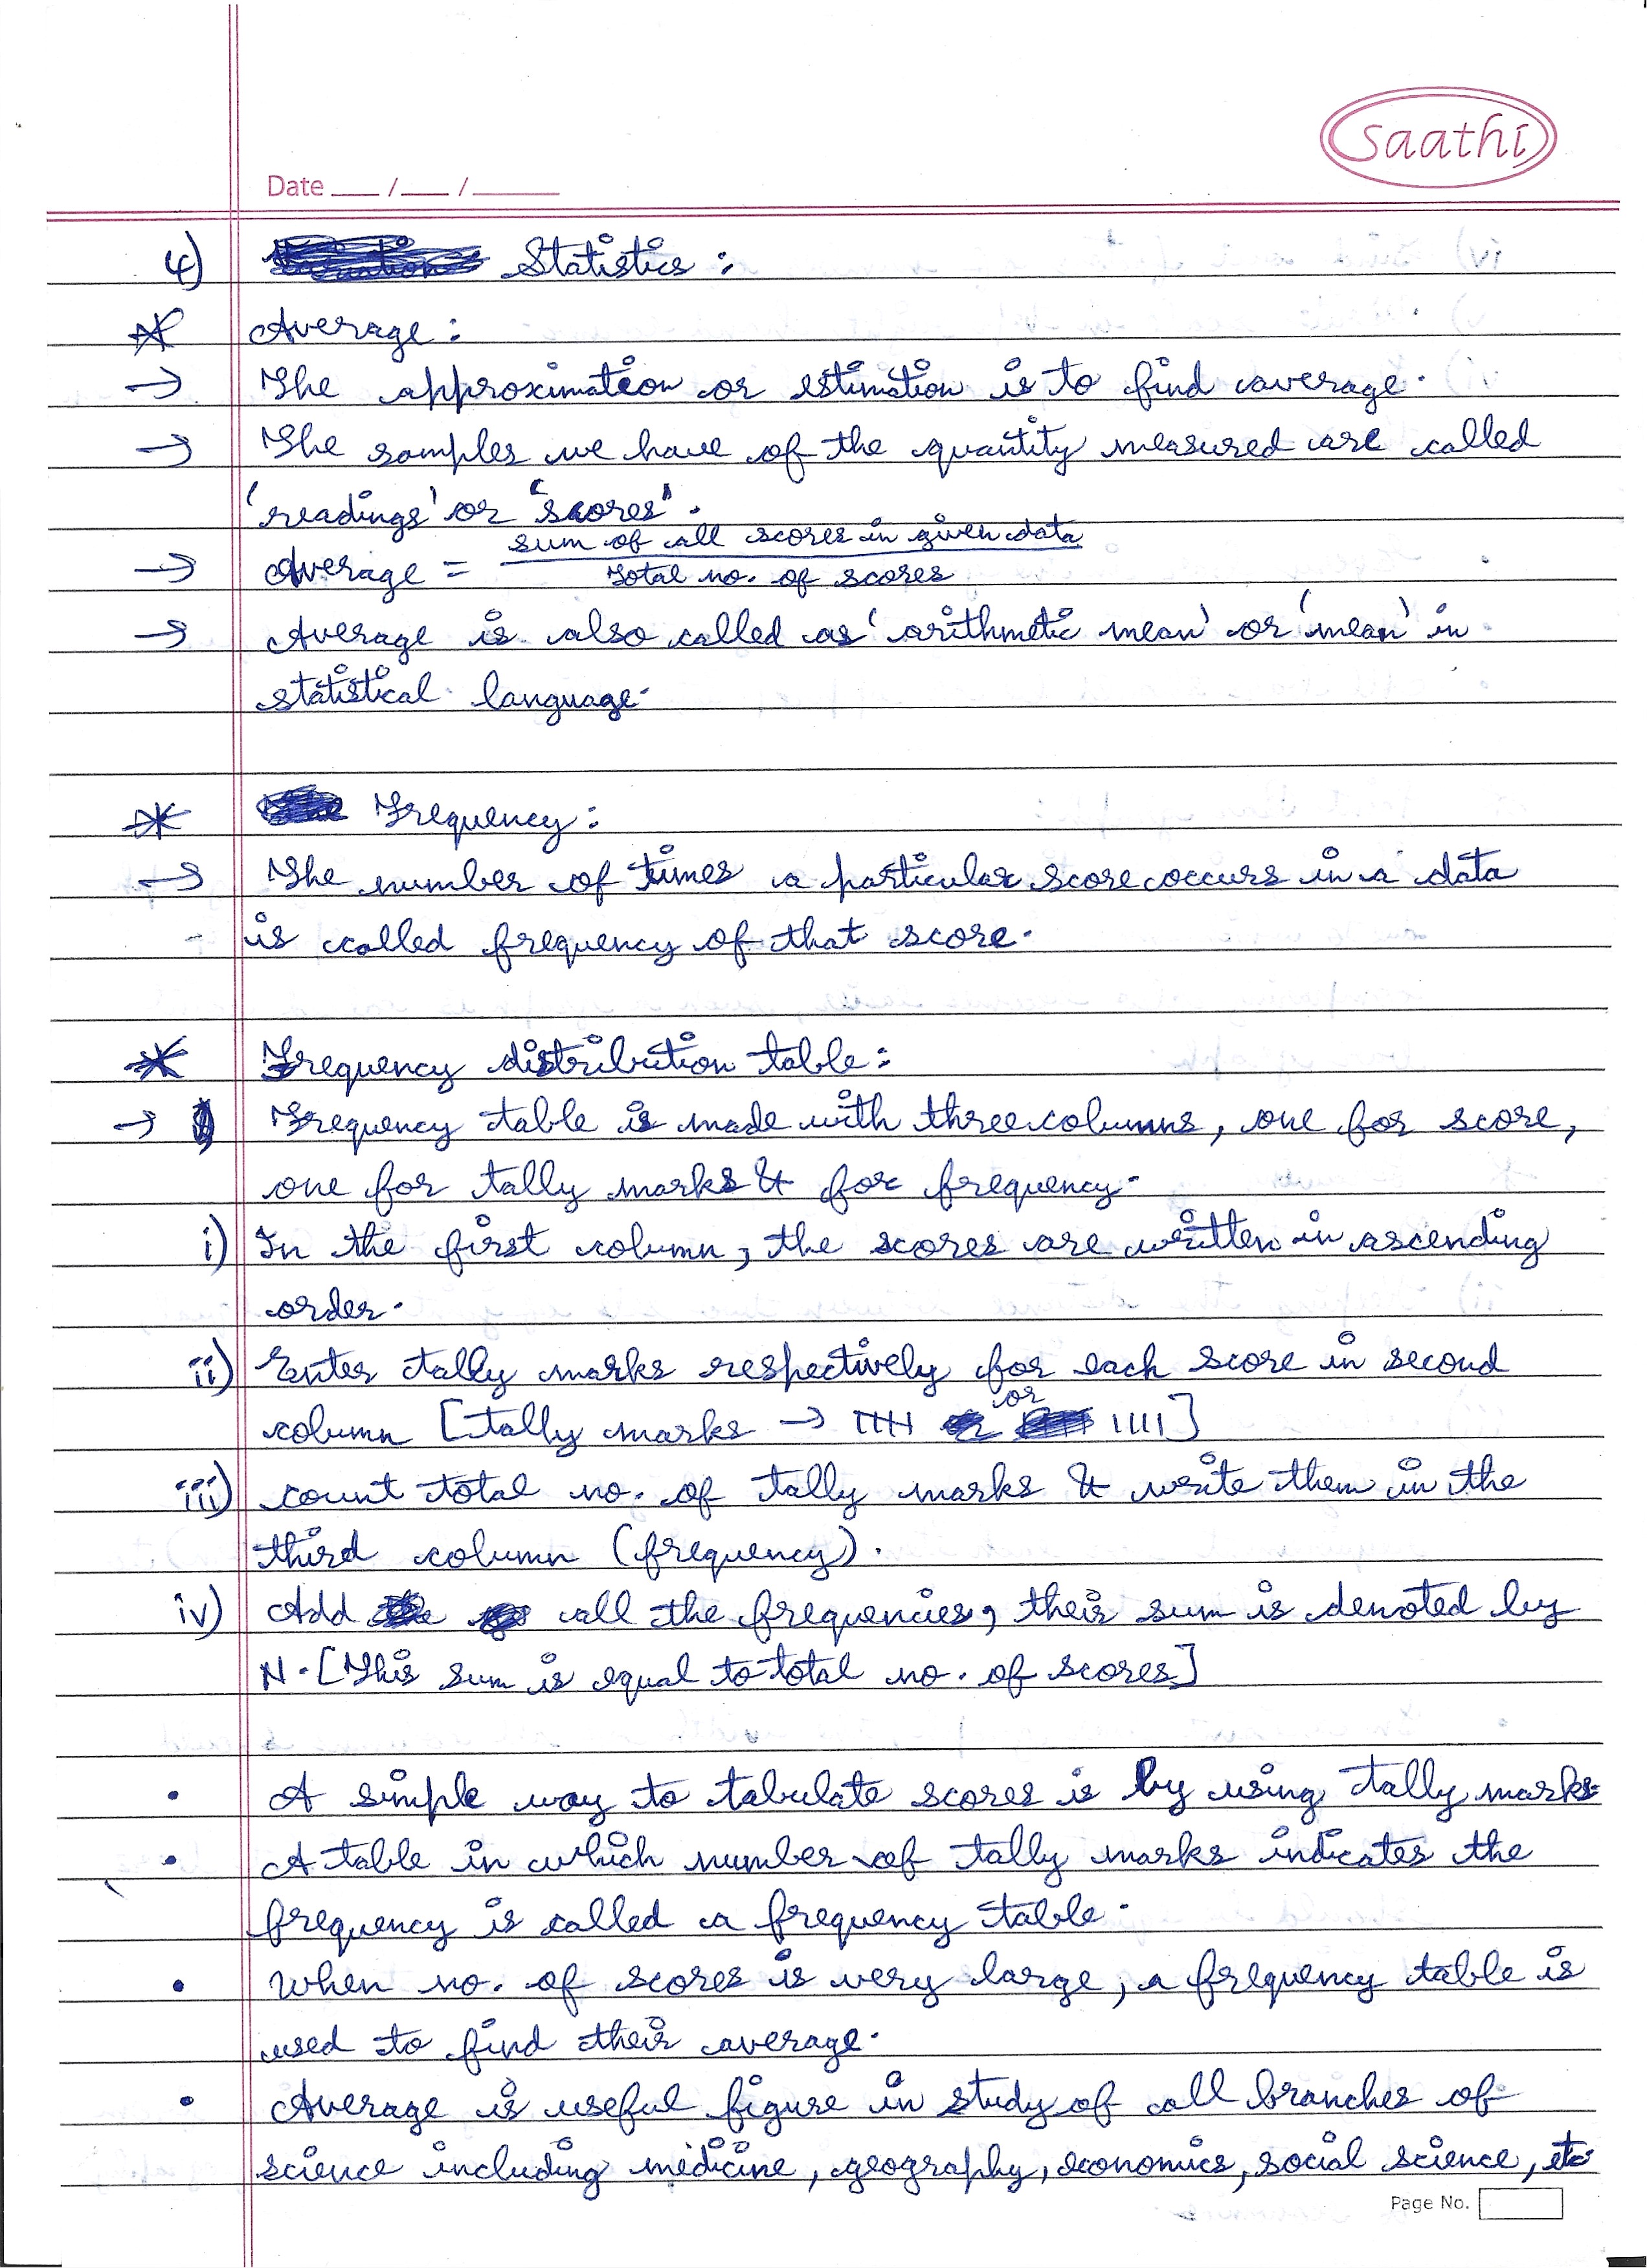 saathi
Date ___ / ___ / ______
4) Statistics :
* Average :
→ The approximation or estimation is to find average.
→ The samples we have of the quantity measured are called
'readings' or 'scores'.
→ Average = sum of all scores in given data
Total no. of scores
→ Average is also called as 'arithmetic mean' or 'mean' in
statistical language.
* Frequency :
→ The number of times a particular score occurs in a data
is called frequency of that score.
* Frequency distribution table :
→ Frequency table is made with three columns, one for score,
one for tally marks & for frequency.
i) In the first column, the scores are written in ascending
order.
ii) Enter tally marks respectively for each score in second
column [tally marks → or IIII]
iii) count total no. of tally marks & write them in the
third column (frequency).
iv) Add all the frequencies, their sum is denoted by
N. [This sum is equal to total no. of scores]
• A simple way to tabulate scores is by using tally marks.
• A table in which number of tally marks indicates the
frequency is called a frequency table.
• When no. of scores is very large, a frequency table is
used to find their average.
• Average is useful figure in study of all branches of
science including medicine, geography, economics, social science, etc
Page No.